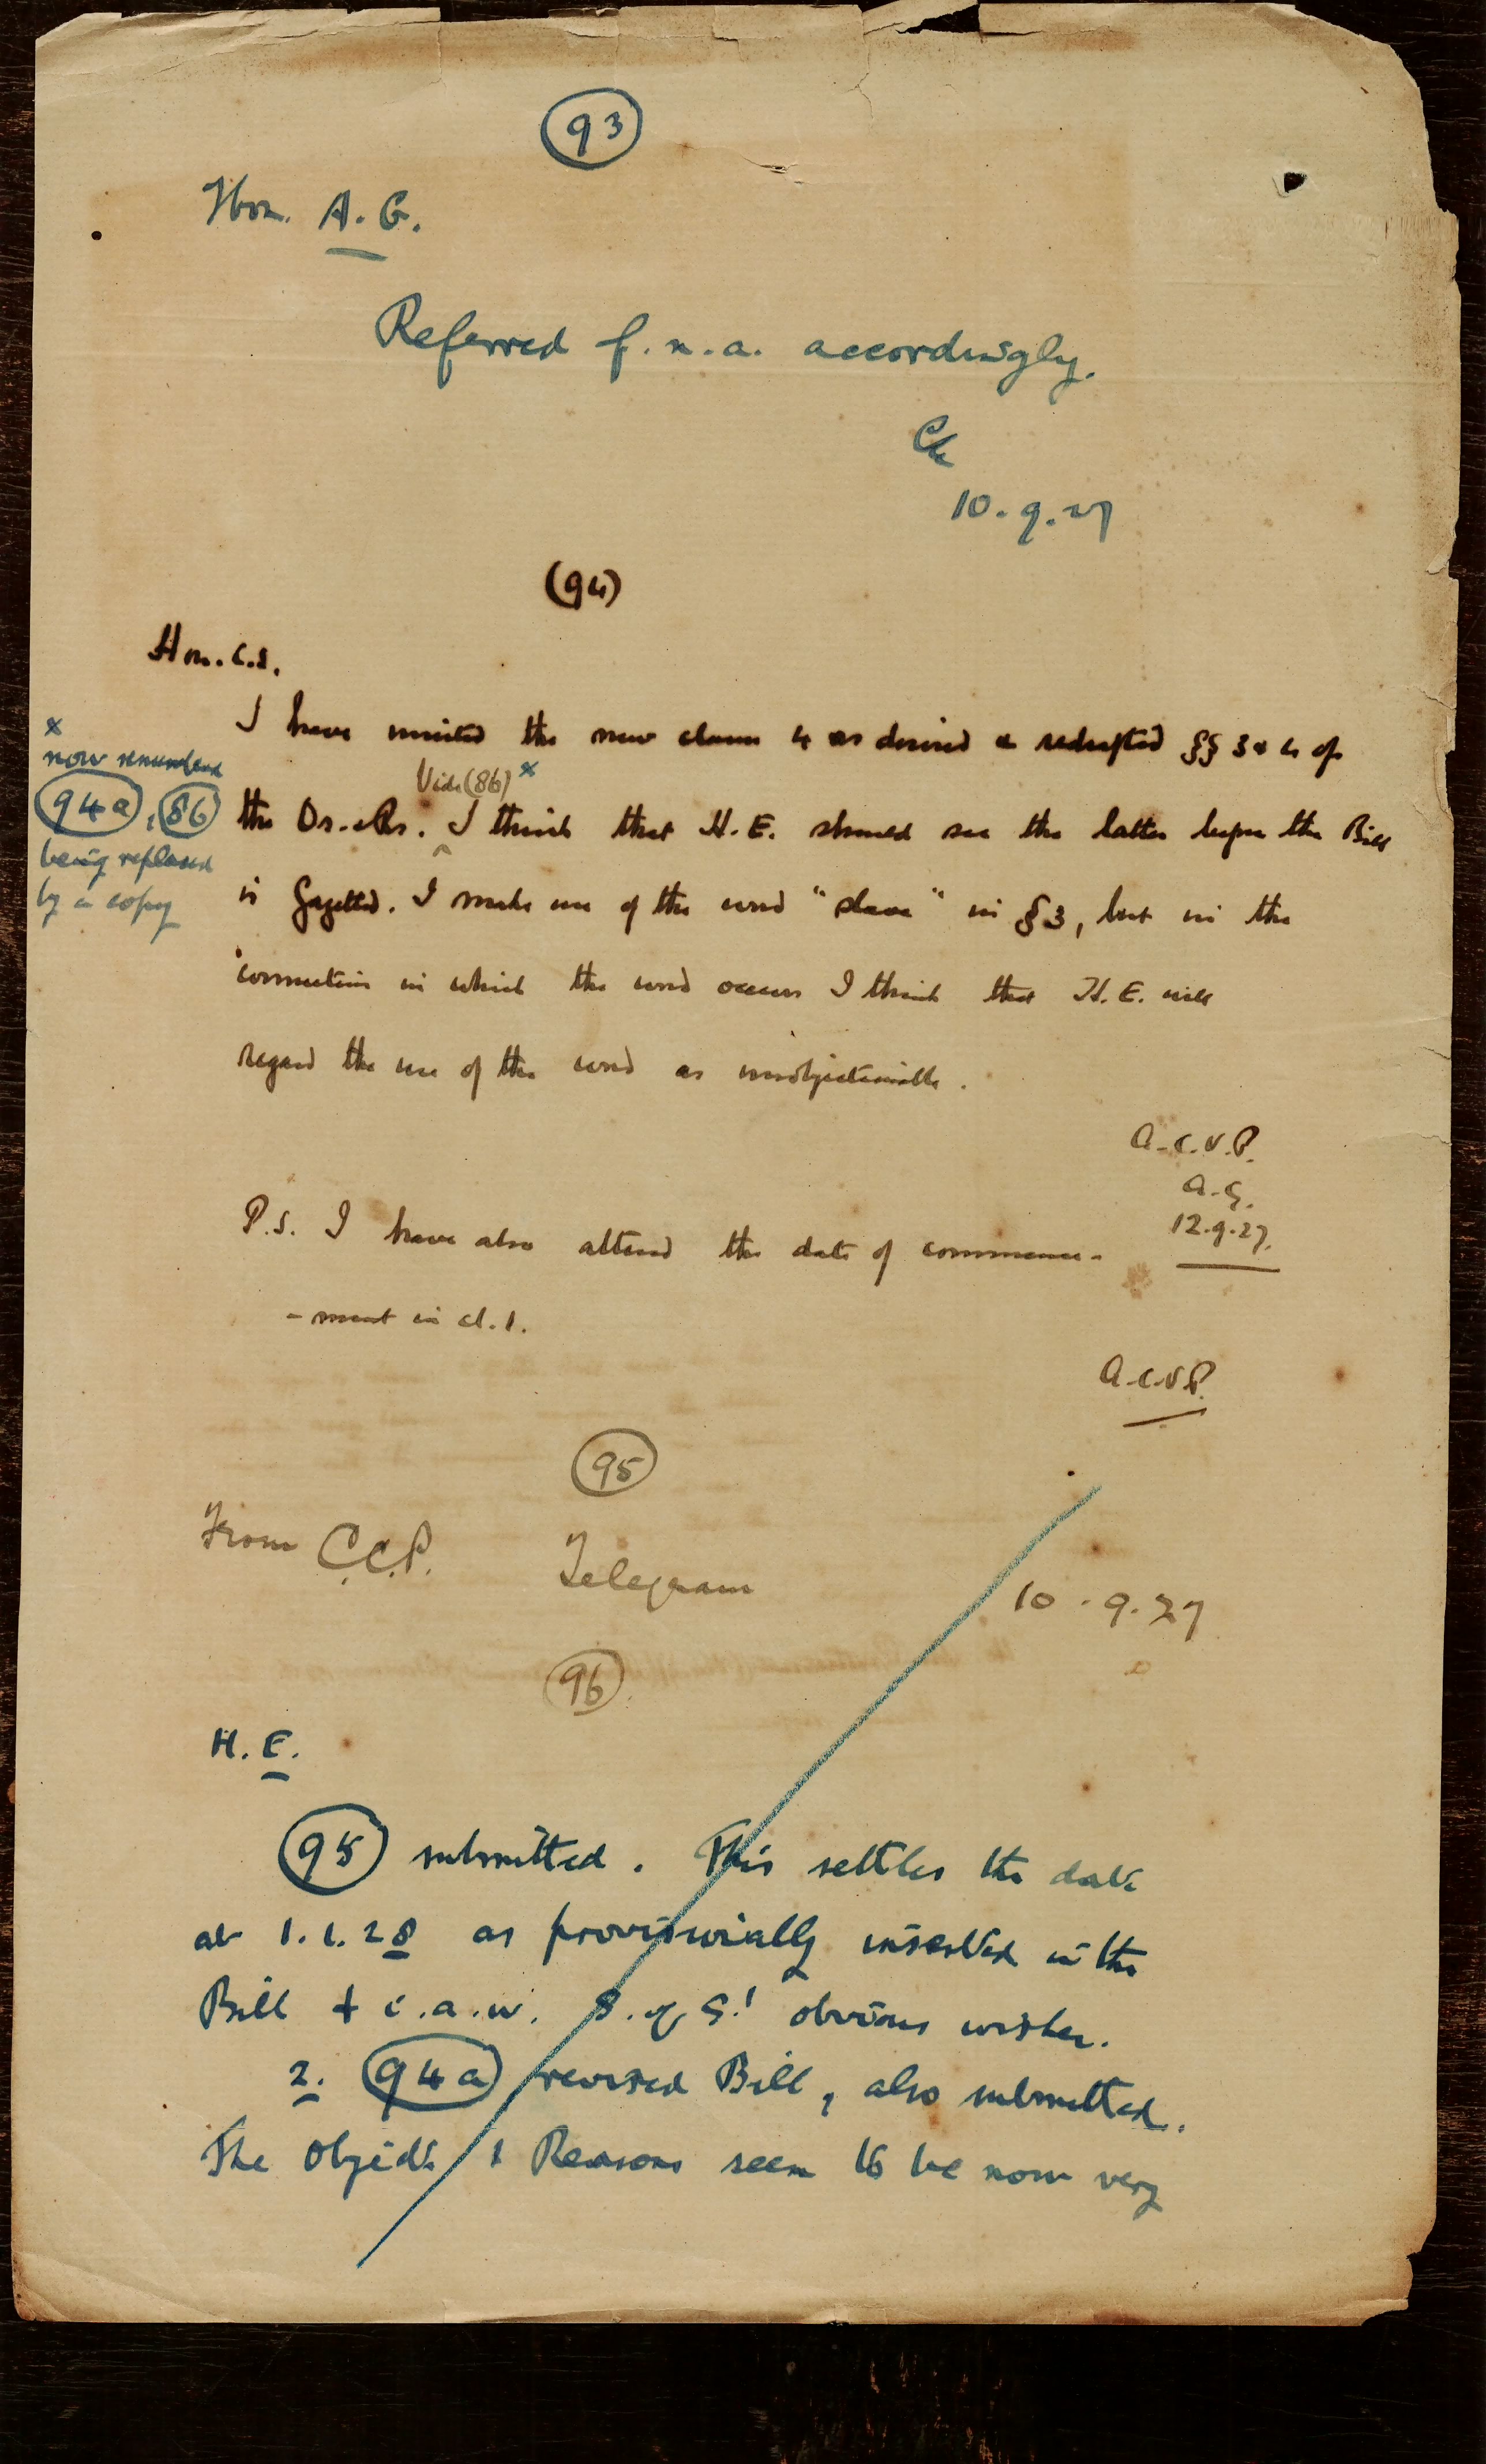 93
Hon. A. G.
Referred f.n.a. accordingly.
10.9.27
(94)
Hon. C.S.
I have inserted the new clause 4 as desired & redrafted §§ 3 & 4 of
Vide (86) x
the Os. & Rs. ^ I think that H.E. should see the latter before the Bill
is gazetted. I make use of the word "slave" in §3, but in the
connection in which the word occurs I think that H.E. will
regard the use of the word as unobjectionable.
x
now renumbered
94a, 86
being replaced
by a copy
A.C.V.P.
A.G.
12.9.27.
P.S. I have also altered the date of commence-
-ment in cl. 1.
A.C.V.P.
95
From C.C.P. Telegram 10.9.27
96
H.E.
95 submitted. This settles the date
at 1.1.28 as provisionally inserted in the
Bill & i.a.w. S. of S.' obvious wishes.
2. 94a revised Bill, also submitted.
The Objects & Reasons seem to be now very